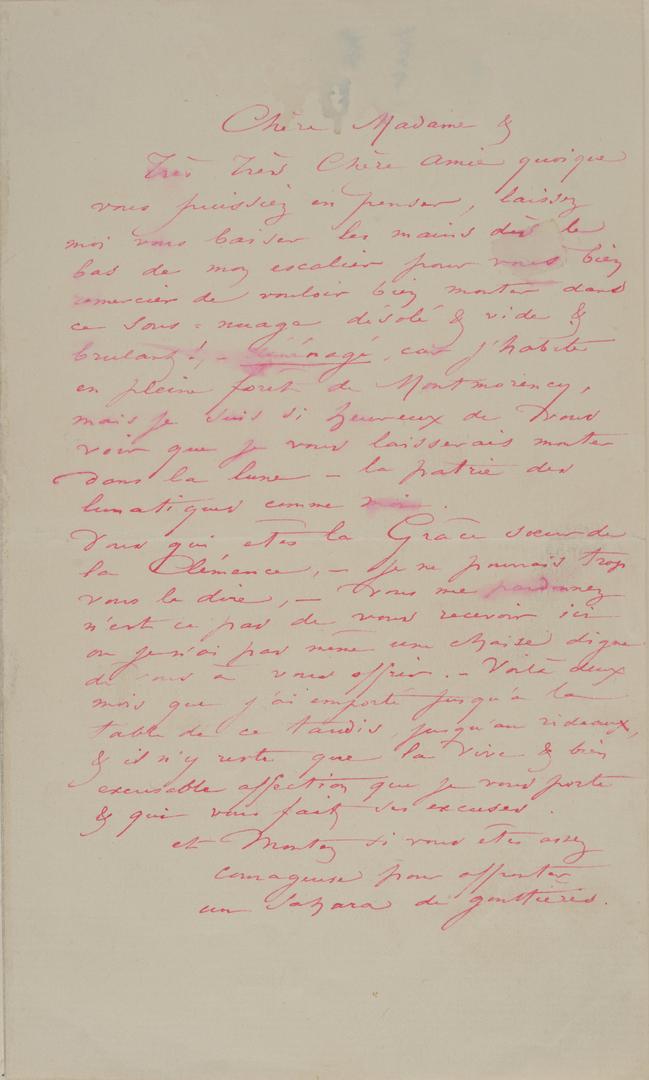 Chère Madame &
Très Très Chère amie quoique
vous puissiez en penser, laissez
moi vous baiser les mains dès le
bas de mon escalier pour vous bien
remercier de vouloir bien monter dans
ce sous-nuage désolé & vide &
brulant! – déménagé, car j'habite
en pleine forêt de Montmorency,
mais je suis si heureux de vous
voir que je vous laisserais monter
dans la lune – la patrie des
lunatiques comme moi.
Vous qui etes la Grâce soeur de
la Clémence, – je ne pourrais trop
vous le dire, – vous me pardonnez
n'est ce pas de vous recevoir ici
ou je n'ai pas même une chaise digne
de vous à vous offrir. – Voilà deux
mois que j'ai emporté jusqu'à la
table de ce taudis, jusqu'au rideaux,
& il n'y reste que la vive & bien
excusable affection que je vous porte
& qui vous fait ses excuses.
et Montez si vous êtes assez
courageuse pour affronter
un Sahara de gouttières.